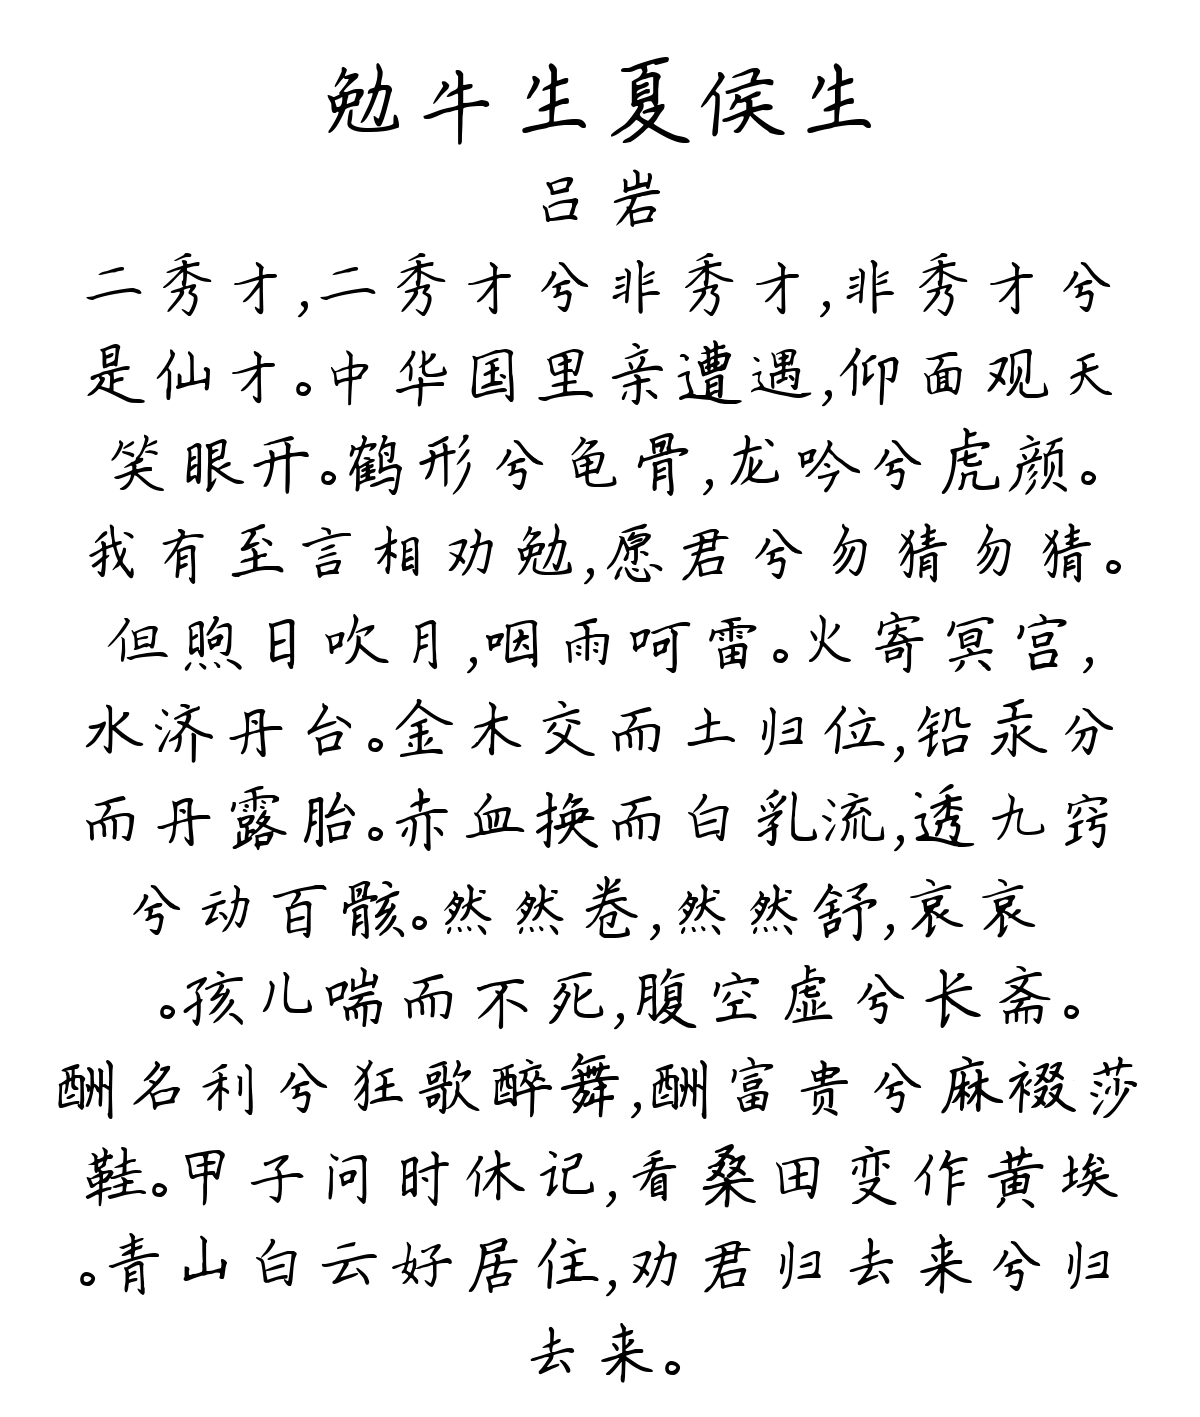 勉牛生夏侯生
吕岩
二秀才,二秀才兮非秀才,非秀才兮
是仙才。中华国里亲遭遇,仰面观天
笑眼开。鹤形兮龟骨,龙吟兮虎颜。
我有至言相劝勉,愿君兮勿猜勿猜。
但煦日吹月,咽雨呵雷。火寄冥宫,
水济丹台。金木交而土归位,铅汞分
而丹露胎。赤血换而白乳流,透九窍
兮动百骸。然然卷,然然舒,哀哀
。孩儿喘而不死,腹空虚兮长斋。
酬名利兮狂歌醉舞,酬富贵兮麻裰莎
鞋。甲子问时休记,看桑田变作黄埃
。青山白云好居住,劝君归去来兮归
去来。